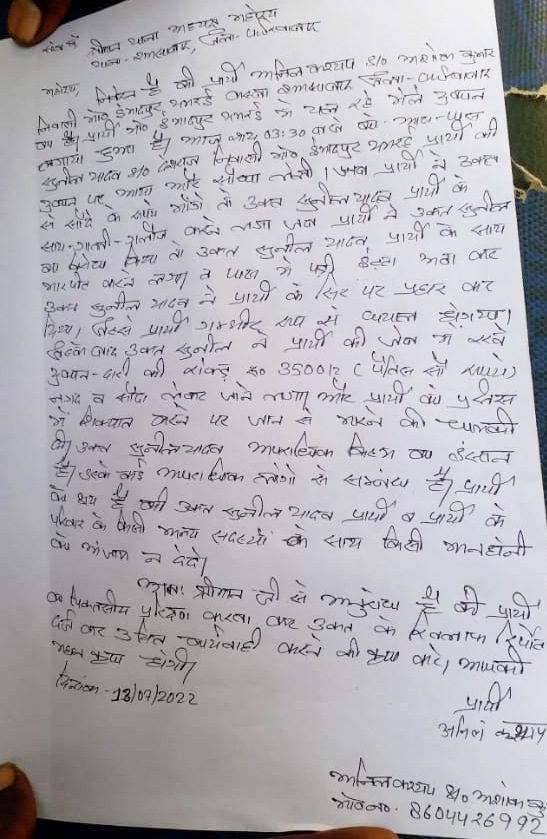 सेवा में श्रीमान थाना अध्यक्ष महोदय
थाना- शमसाबाद, जिला- फर्रुखाबाद
महोदय,
निवेदन है की प्रार्थी अनिल कश्यप S/O अशोक कुमार
निवासी मो० ईमादपुर थमरई कस्बा शमसाबाद जिला- फर्रुखाबाद
का है। प्रार्थी मो० ईमादपुर थमरई में चल रहे मेले दुकान
लगाया हुआ है। आज शाय 03:30 बजे के आस-पास
सुनील यादव S/O देशराज निवासी मो० ईमादपुर थमरई प्रार्थी की
दुकान पर आया और सौदा लेली। जब प्रार्थी ने उक्त
से सौदे के रुपये माँगे तो उक्त सुनील यादव प्रार्थी के
साथ गाली-गलौज करने लगा जब प्रार्थी ने उक्त सुनील
का विरोध किया तो उक्त सुनील यादव प्रार्थी के साथ
मारपीट करने लगा व पास में पड़ी डण्डा उठा कर
उक्त सुनील यादव ने प्रार्थी के सिर पर प्रहार कर
दिया, जिससे प्रार्थी गम्भीर रूप से घायल होगया।
जिसके बाद उक्त सुनील ने प्रार्थी की जेब में रखे
दुकान-दारी की रु० 3500/2 (पैंतिस सौ रुपये)
नगद व सौदा लेकर जाने लगा और प्रार्थी को पुलिस
में शिकायत करने पर जान से मारने की धमकी
दी, उक्त सुनील यादव अपराधिक किस्म का इंसान
है। उसके कई अपराधिक लोगो से सम्बन्ध है। प्रार्थी
को भय है की उक्त सुनील यादव प्रार्थी व प्रार्थी के
परिवार के किसी अन्य सदस्यों के साथ किसी अनहोनी
को अंजाम न देदे।
अतः श्रीमान जी से अनुरोध है की प्रार्थी
का चिकित्सीय परिक्षण करवा कर उक्त के खिलाफ रिपोर्ट
दर्ज कर उचित कार्यवाही करने की कृपा करे, आपकी
महान कृपा होगी।
दिनांक - 13/07/2022
प्रार्थी
अनिल कश्यप
अनिल कश्यप S/O अशोक कु०
मो० न०- 8604426992